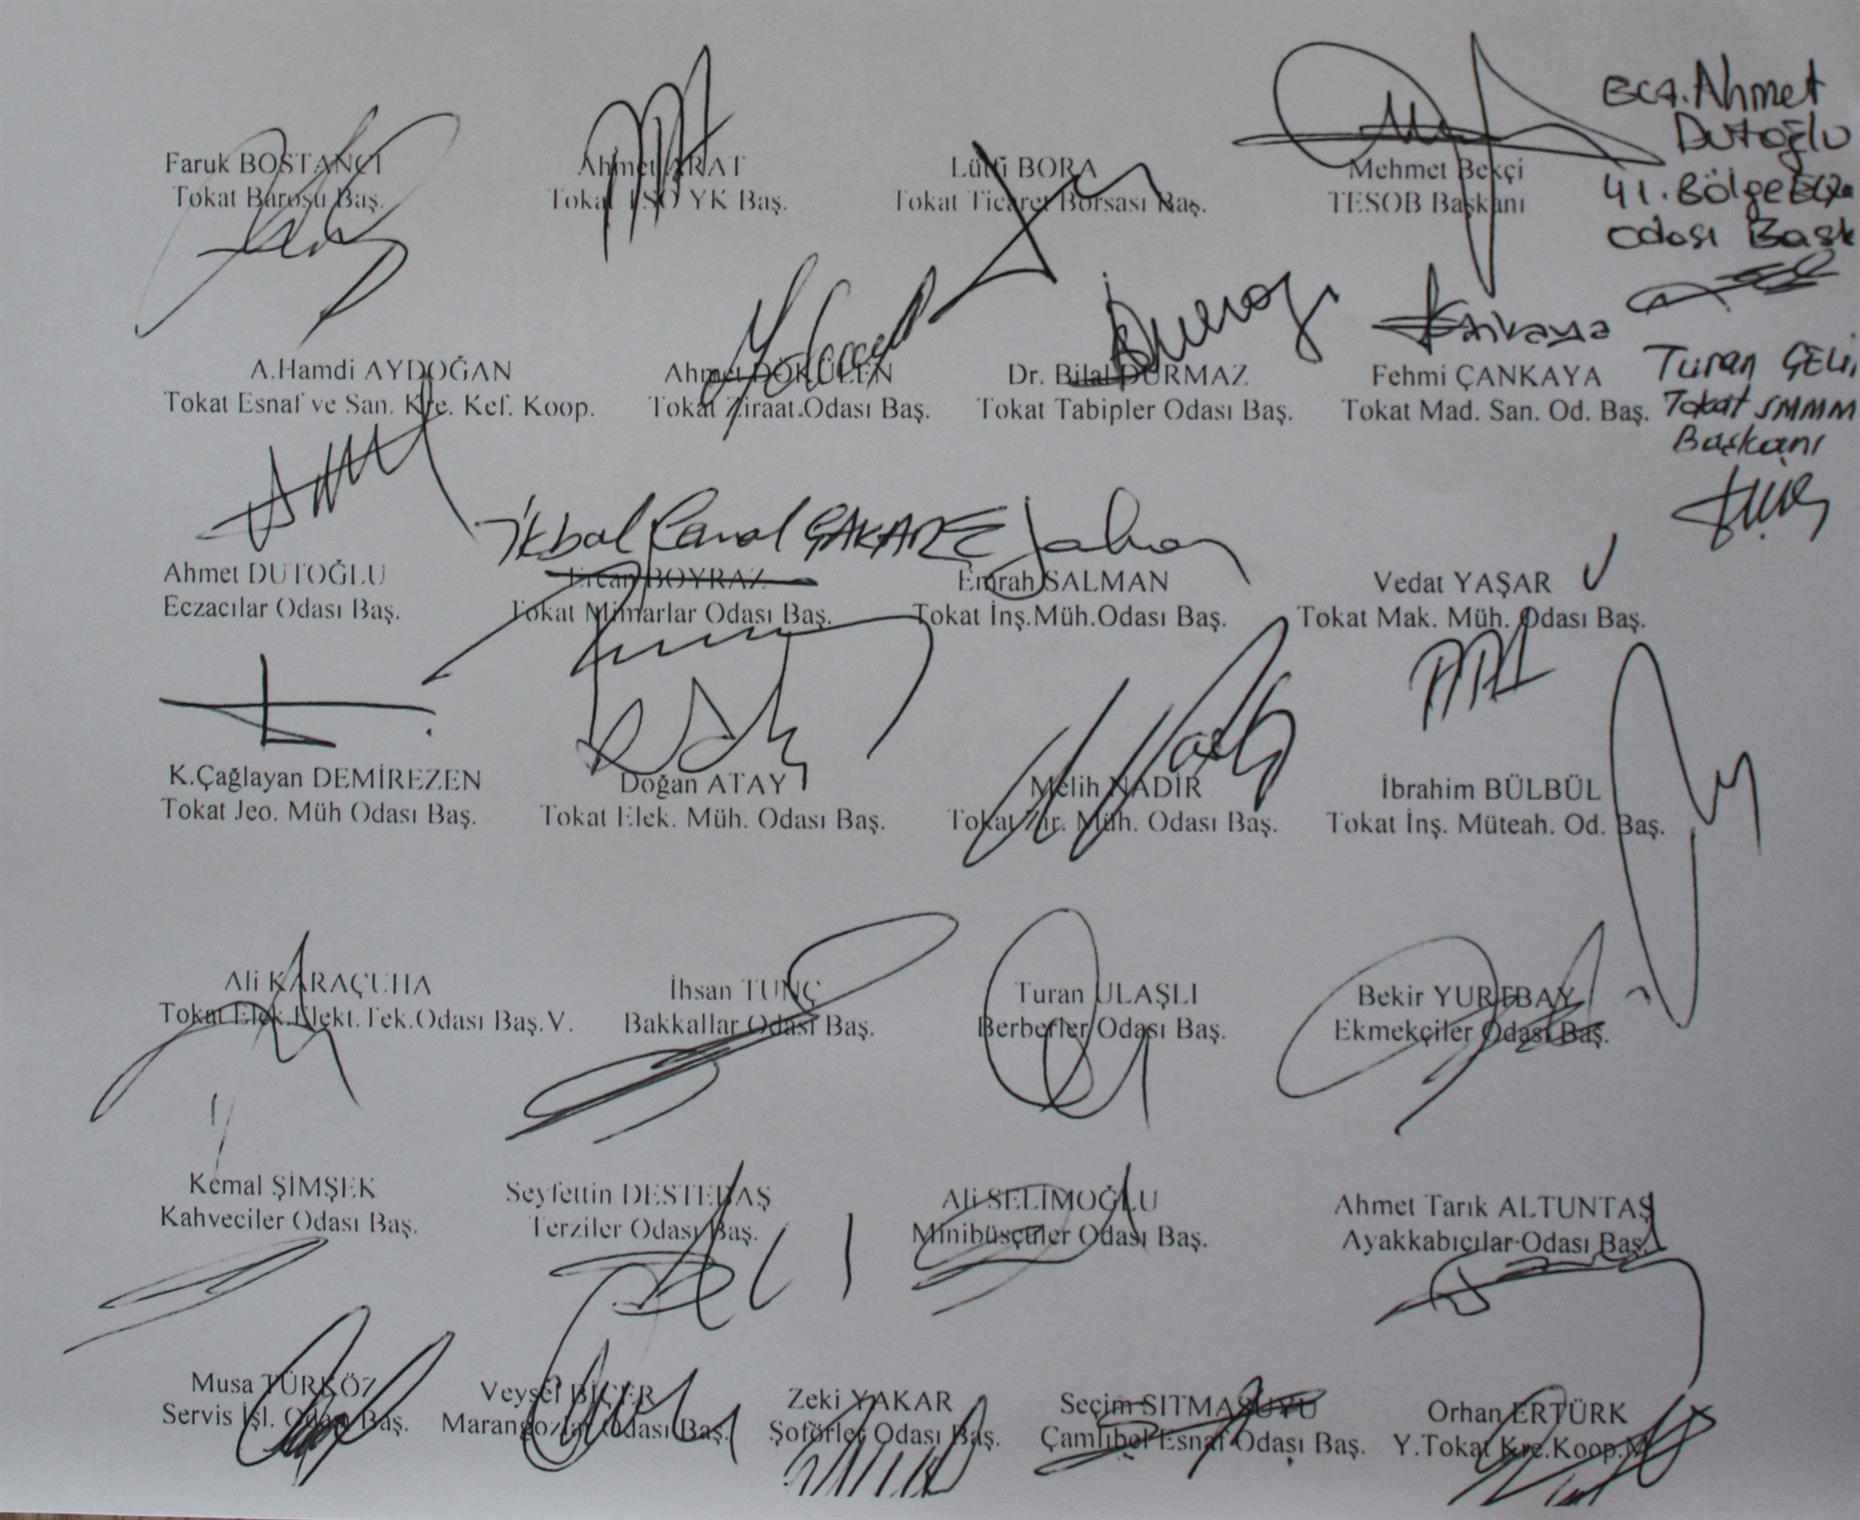 Ecz. Ahmet
Dutoğlu
41. Bölge Ecza
Odası Başk
Faruk BOSTANCI
Tokat Barosu Baş.
Ahmet ARAT
Tokat TSO YK Baş.
Lütfi BORA
Tokat Ticaret Borsası Baş.
Mehmet Bekçi
TESOB Başkanı
A.Hamdi AYDOĞAN
Tokat Esnaf ve San. Kre. Kef. Koop.
Ahmet DÖKÜLEN
Tokat Ziraat.Odası Baş.
Dr. Bilal DURMAZ
Tokat Tabipler Odası Baş.
Fehmi ÇANKAYA
Tokat Mad. San. Od. Baş.
Turan
Tokat SMMM
Başkanı
Çankaya
İkbal
Ahmet DUTOĞLU
Eczacılar Odası Baş.
Ercan BOYRAZ
Tokat Mimarlar Odası Baş.
Emrah SALMAN
Tokat İnş.Müh.Odası Baş.
Vedat YAŞAR
Tokat Mak. Müh. Odası Baş.
K.Çağlayan DEMİREZEN
Tokat Jeo. Müh Odası Baş.
Doğan ATAY
Tokat Elek. Müh. Odası Baş.
Melih NADİR
Tokat Zir. Müh. Odası Baş.
İbrahim BÜLBÜL
Tokat İnş. Müteah. Od. Baş.
Ali KARAÇUHA
Tokat Elek.Elekt.Tek.Odası Baş.V.
İhsan TUNÇ
Bakkallar Odası Baş.
Turan ULAŞLI
Berberler Odası Baş.
Bekir YURTBAY
Ekmekçiler Odası Baş.
Kemal ŞİMŞEK
Kahveciler Odası Baş.
Seyfettin DESTEBAŞ
Terziler Odası Baş.
Ali SELİMOĞLU
Minibüsçüler Odası Baş.
Ahmet Tarık ALTUNTAŞ
Ayakkabıcılar Odası Baş.
Musa TÜRKÖZ
Servis İşl. Odası Baş.
Veysel BİÇER
Marangozlar Odası Baş.
Zeki YAKAR
Şoförler Odası Baş.
Seçim SITMASUYU
Çamlıbel Esnaf Odası Baş.
Orhan ERTÜRK
Y.Tokat Kre.Koop.M